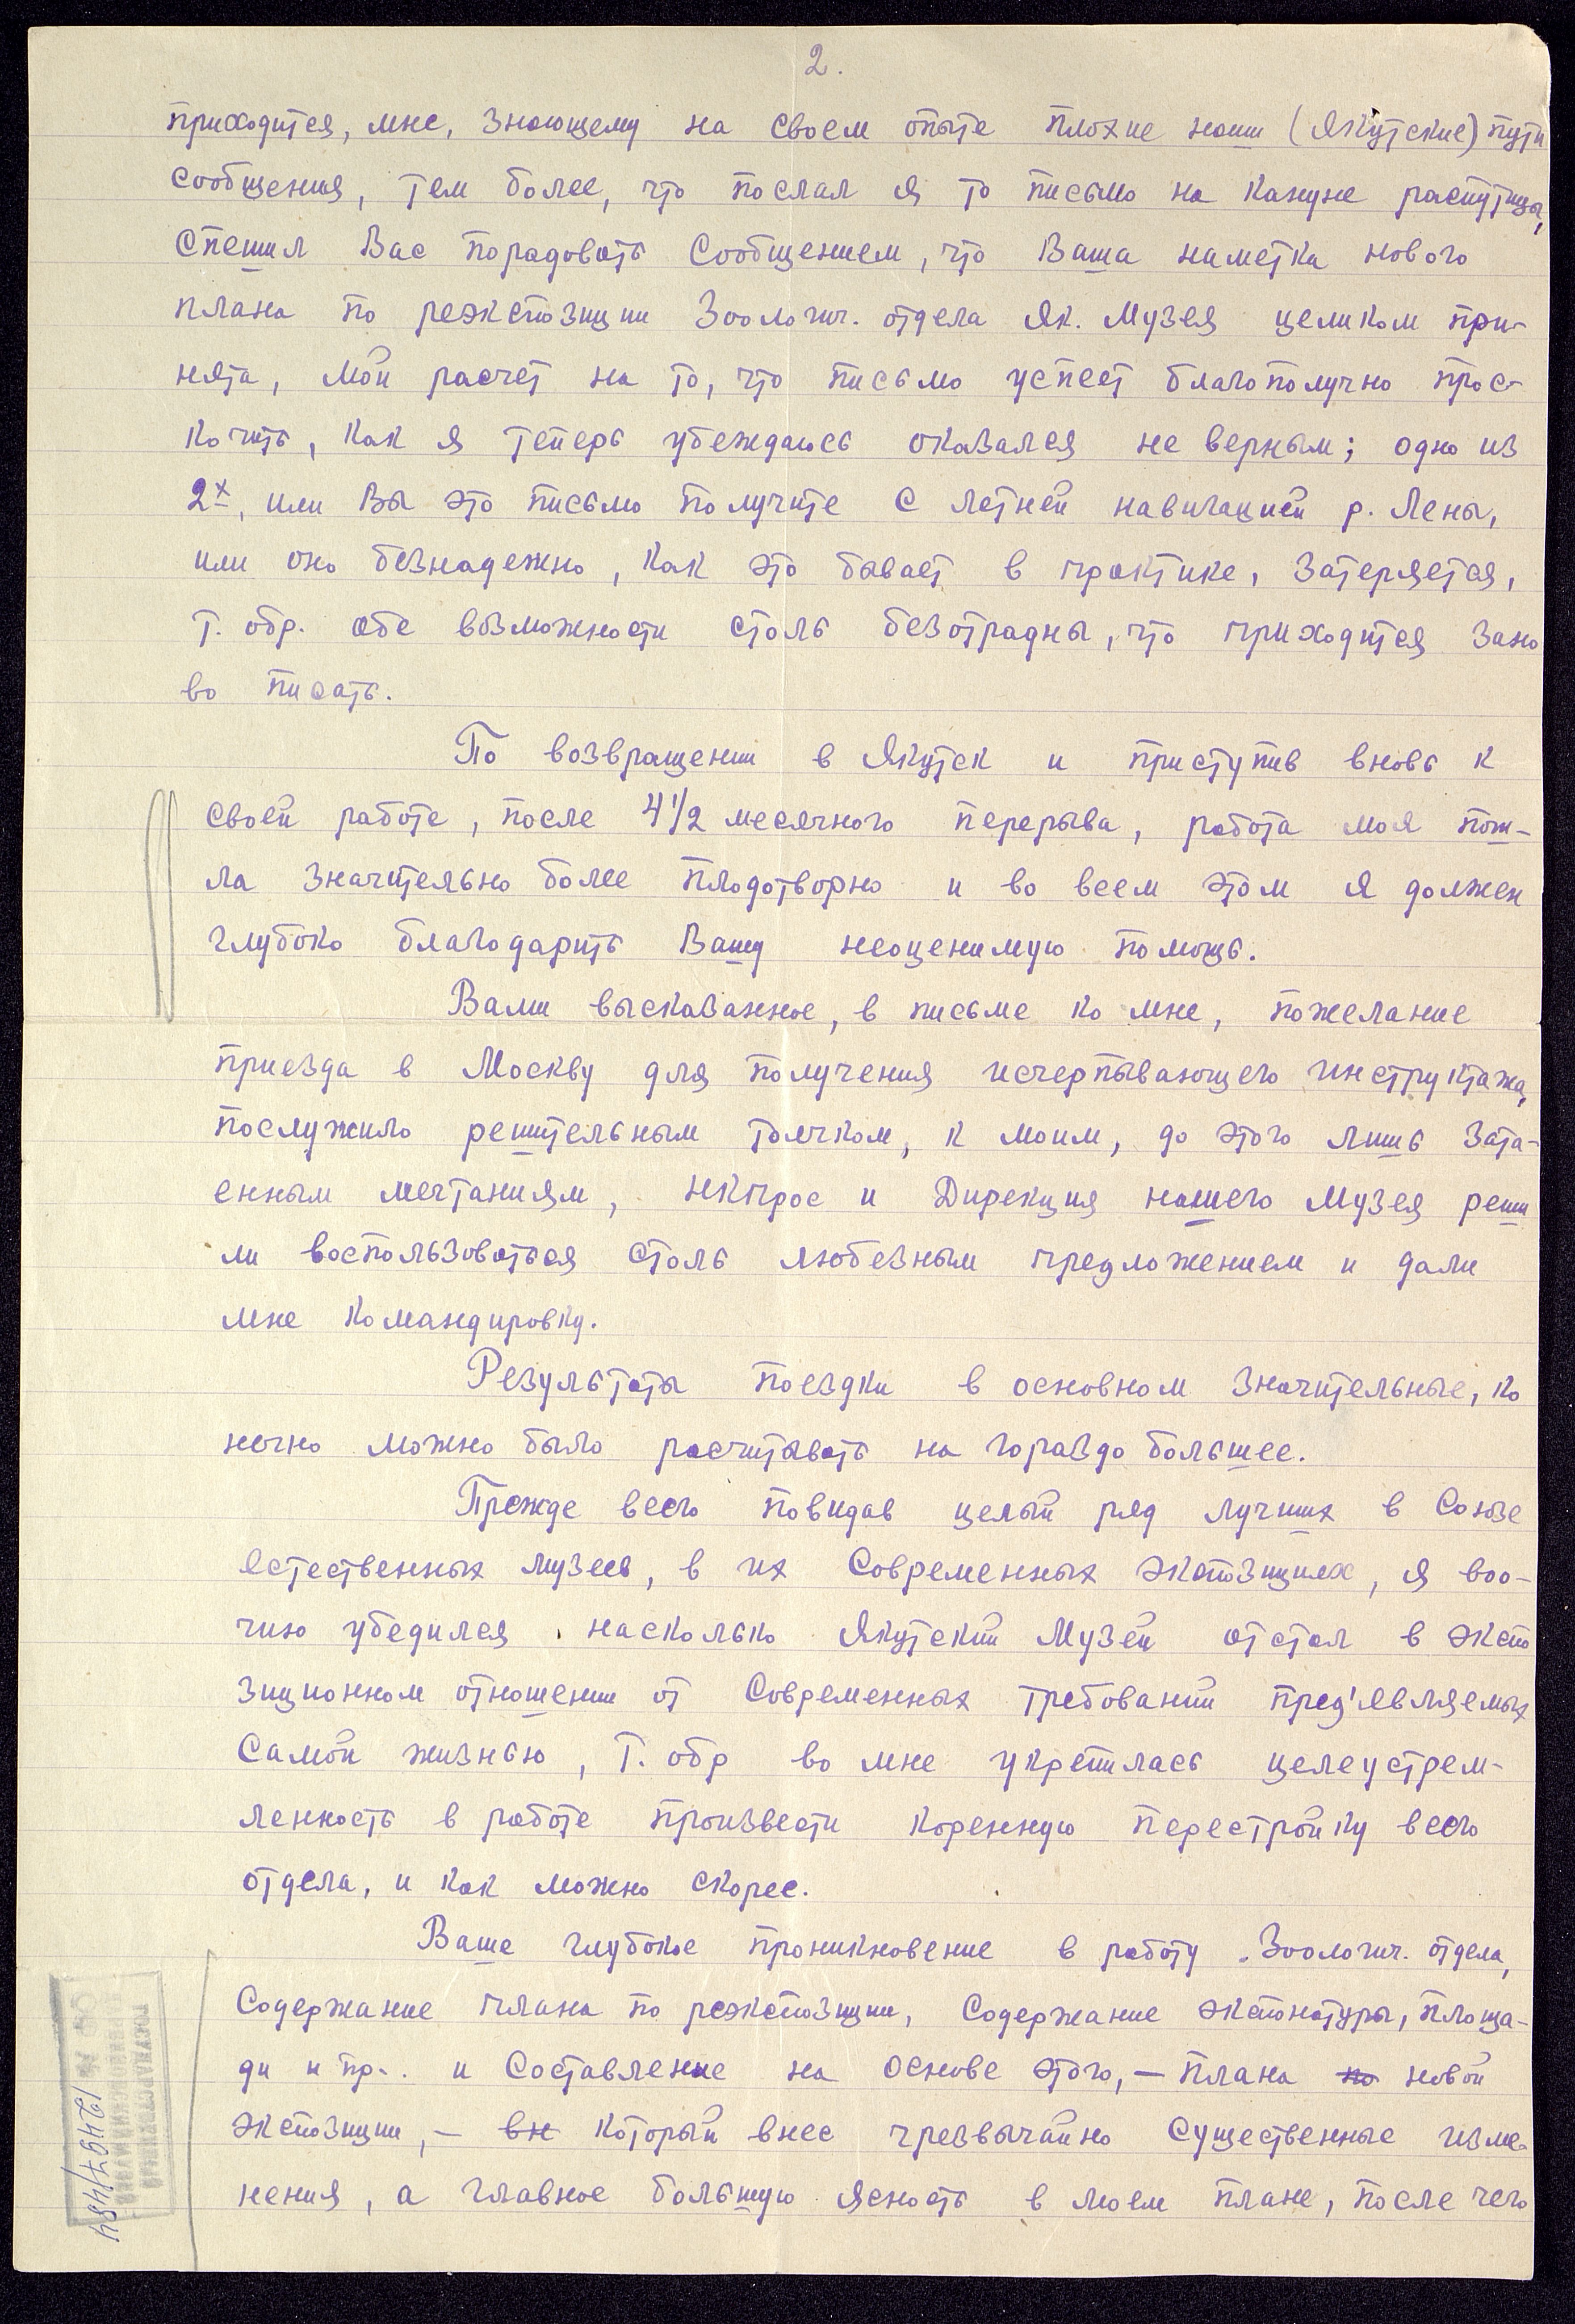 2.
приходится, мне, знающему на своем опыте плохие наши (Якутские) пути
сообщения, тем более, что послал я то письмо на кануне распутицы,
спешил Вас порадовать сообщением, что Ваша наметка нового
плана по реэкспозиции Зоологич. отдела Як. Музея целиком при-
нята, мой расчет на то, что письмо успеет благополучно прос-
кочить, как я теперь убеждаюсь оказался не верным; одно из
2х, или Вы это письмо получите с летней навигацией р. Лены,
или оно безнадежно, как это бывает в практике, затеряется,
т. обр. обе возможности столь безотрадны, что приходится зано
во писать.
По возвращении в Якутск и приступив вновь к
своей работе, после 4 1/2 месячного перерыва, работа моя пош-
ла значительно более плодотворно и во всем этом я должен
глубоко благодарить Вашу неоценимую помощь.
Вами высказанное, в письме ко мне, пожелание
приезда в Москву для получения исчерпывающего инструктажа,
послужило решительным толчком, к моим, до этого лишь зата-
енным мечтаниям, НКПрос и Дирекция нашего Музея реши
ли воспользоваться столь любезным предложением и дали
мне командировку.
Результаты поездки в основном значительные, ко
нечно можно было расчитывать на гораздо большее.
Прежде всего повидав целый ряд лучших в Союзе
естественных музеев, в их современных экспозициях, я воо-
чию убедился насколько Якутский Музей отстал в экспо
зиционном отношении от современных требований пред'являемых
самой жизнью, т. обр во мне укрепилась целеустрем-
ленность в работе произвести коренную перестройку всего
отдела, и как можно скорее.
Ваше глубокое проникновение в работу Зоологич. отдела,
содержание плана по реэкспозиции, содержание экспонатуры, площа-
ди и пр.. и составление на основе этого, — плана по новой
экспозиции, — вн который внес чрезвычайно существенные изме-
нения, а главное большую ясность в моем плане, после чего
12497/484